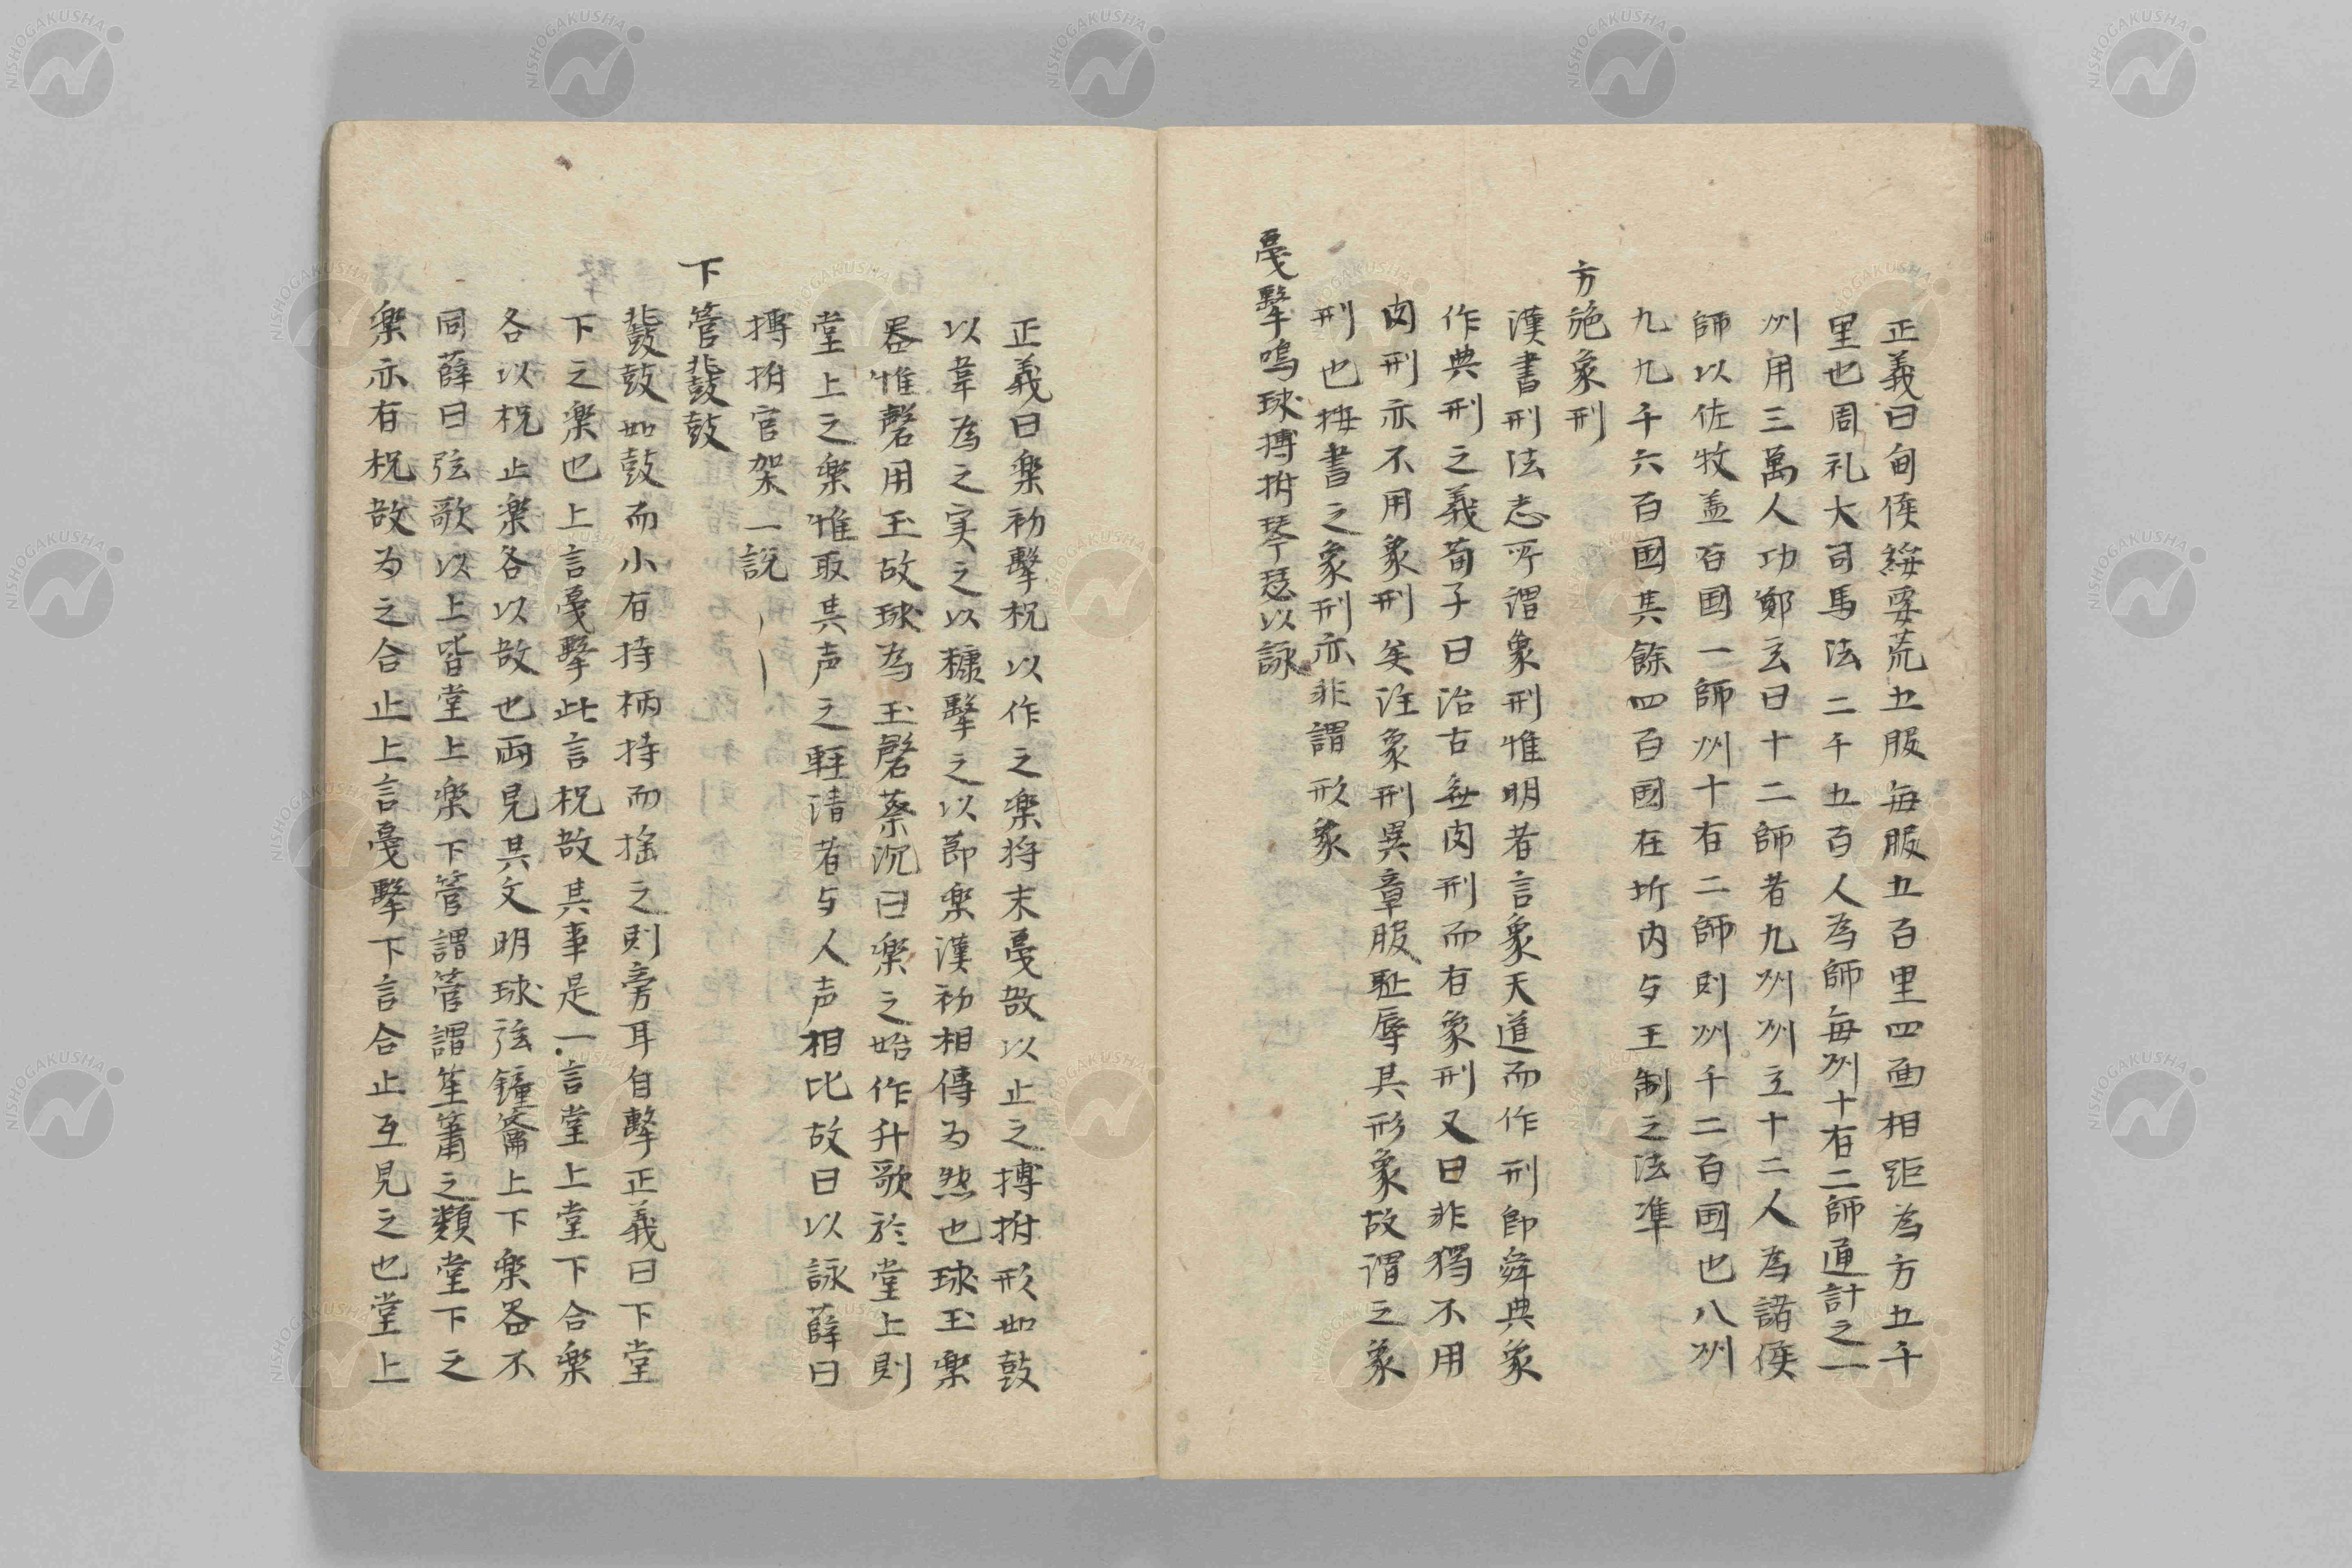 正義曰甸侯綏要荒五服每服五百里四面相距為方五千
里也周礼大司馬法二千五百人為師每州十有二師通計之一
州用三萬人功鄭玄曰十二師者九州州立十二人為諸侯
師以佐牧盖百国一師州十有二師則州千二百国也八州
九九千六百国其餘四百国在圻内与王制之法準
方施象刑
漢書刑法志所謂象刑惟明者言象天道而作刑即舜典象
作典刑之義荀子曰治古無肉刑而有象刑又曰非獨不用
肉刑亦不用象刑矣注象刑異章服耻辱其形象故謂之象
刑也按書之象刑亦非謂形象
戛擊鳴球搏拊琴瑟以詠
正義曰楽初擊柷以作之楽将末戛敔以止之搏拊形如鼓
以韋為之実之以糠擊之以節楽漢初相傳為然也球玉楽
器惟磬用玉故球為玉磬蔡沉曰楽之始作升歌於堂上則
堂上之楽惟取其声之軽清者与人声相比故曰以詠薛曰
搏拊官架一説
下管鼗鼓
鼗鼓如鼓而小有持柄持而揺之則旁耳自擊正義曰下堂
下之楽也上言戛擊此言柷敔其事是一言堂上堂下合楽
各以柷止楽各以敔也両見其文明球弦鐘籥上下楽器不
同薛曰弦歌以上皆堂上楽下管謂管謂笙簫之類堂下之
楽亦有柷敔為之合止上言戛擊下言合止互見之也堂上
NISHOGAKUSHA